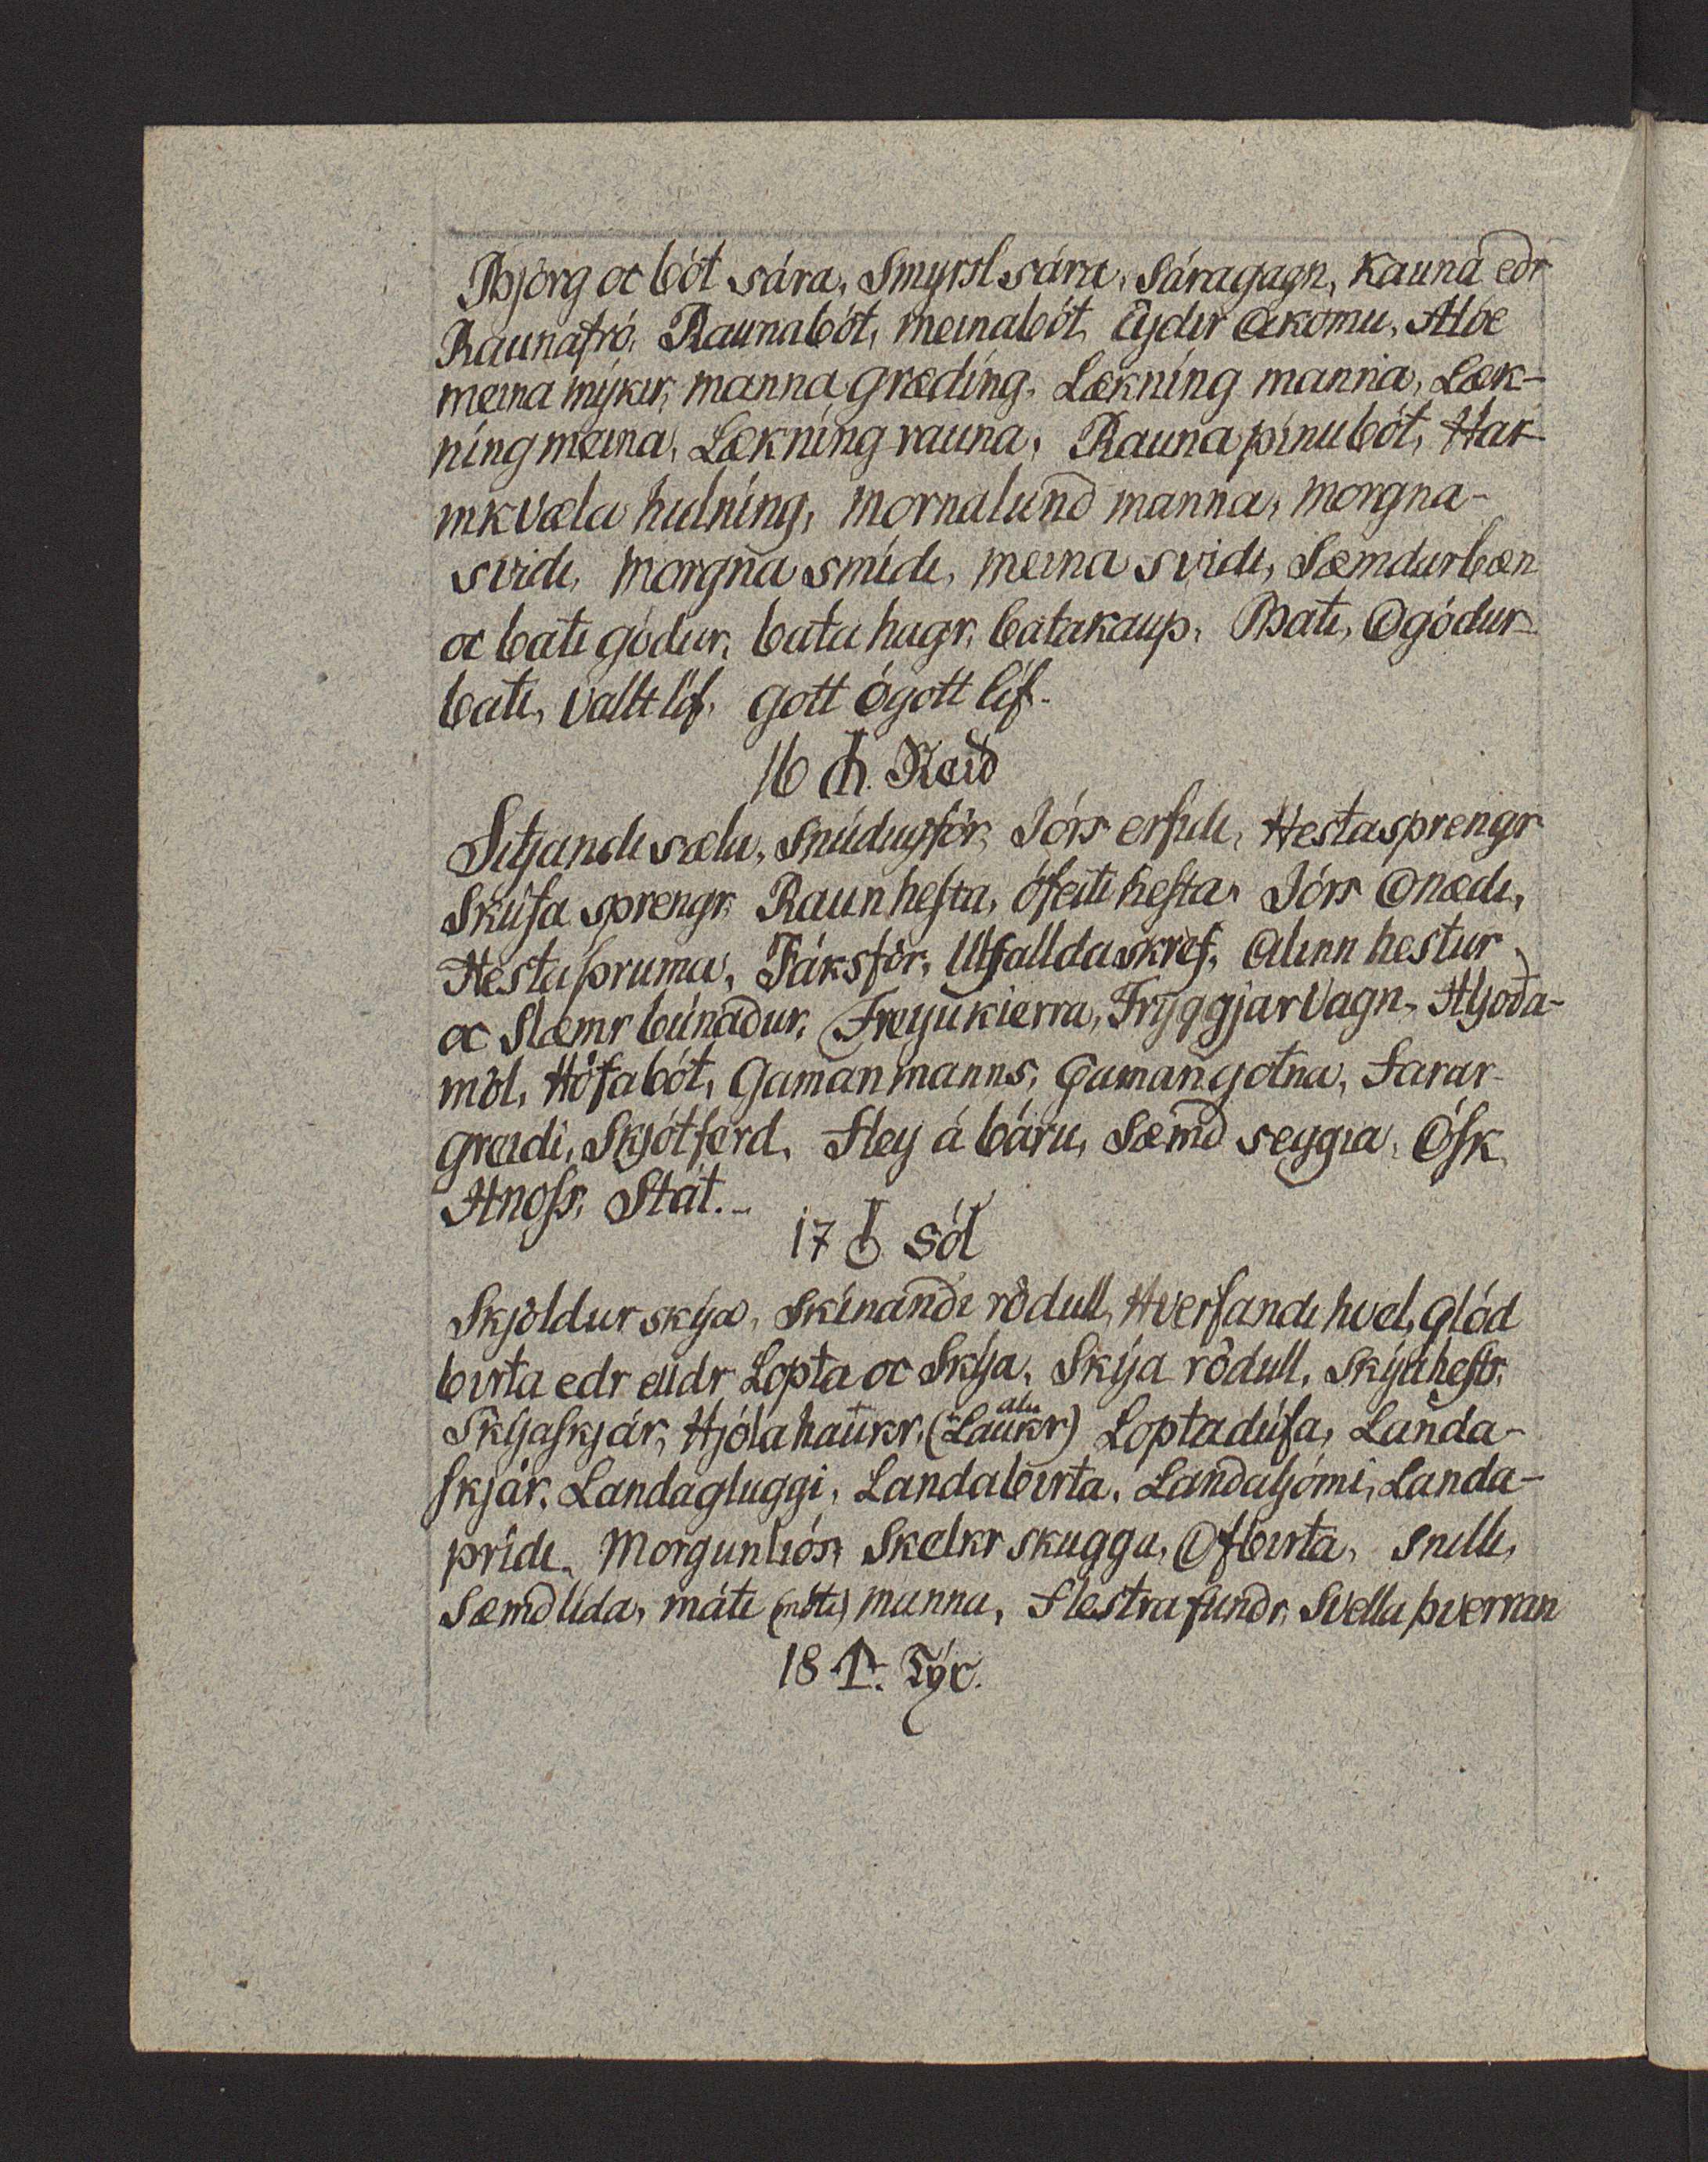 Bjorg oc bót sára, Smyrsl sára, Sáragagn, Kauna edr
Raunafró, Raunabót, meinabót, Eydir ákomu, Aloe
meina mýkir, manna græding, Lækning manna, Læk-
ning meina, Lækning rauna, Raunapínubót, Har-
mkvæla hulning, mornalund manna, morgna-
svidi, morgna smídi, meina svidi, Sæmdurbæn
oc bati gódur, bata hagr, batakaup, Bati, Ógódur
bati, vallt líf, gott ógott líf.
16 Reið
Sitjandi sæla, Snúdugför, Jórs erfidi, Hestasprengr
Skúfa sprengr, Raun hesta, ófeiti hesta, Jórs Ónædi,
Hesta þruma, Fáksför, Útfallda skref, Alinn hestur
oc Slæmr búnadur, Freyu kierra, Tryggjar vagn, Hljoda-
möl, Hófabót, Gaman manns, Gaman gotna, Farar-
greidi, Skjótferd, Fley á báru, Sæmd seggia, Ósk
Hnoss, Stát.
17 Sól
Skjöldur skýa, Skínandi rödull, Hverfandi hvel, glód
birta edr eldr Lopta oc Skýa, Skýa rödull, Skýa hestr.
Skýaskjár, Hjóla haukr, (Laukr) Loptadúfa, Landa-
skjár, Landagluggi, Landabirta, Landaljómi, Landa-
prídi, Morgunliós, Skelkr skugga, Ofbirta, Snilli,
Sæmd lída, máti (móti) manna, Flestra fundr, Svella þverran
18 ᛏ. Týr.